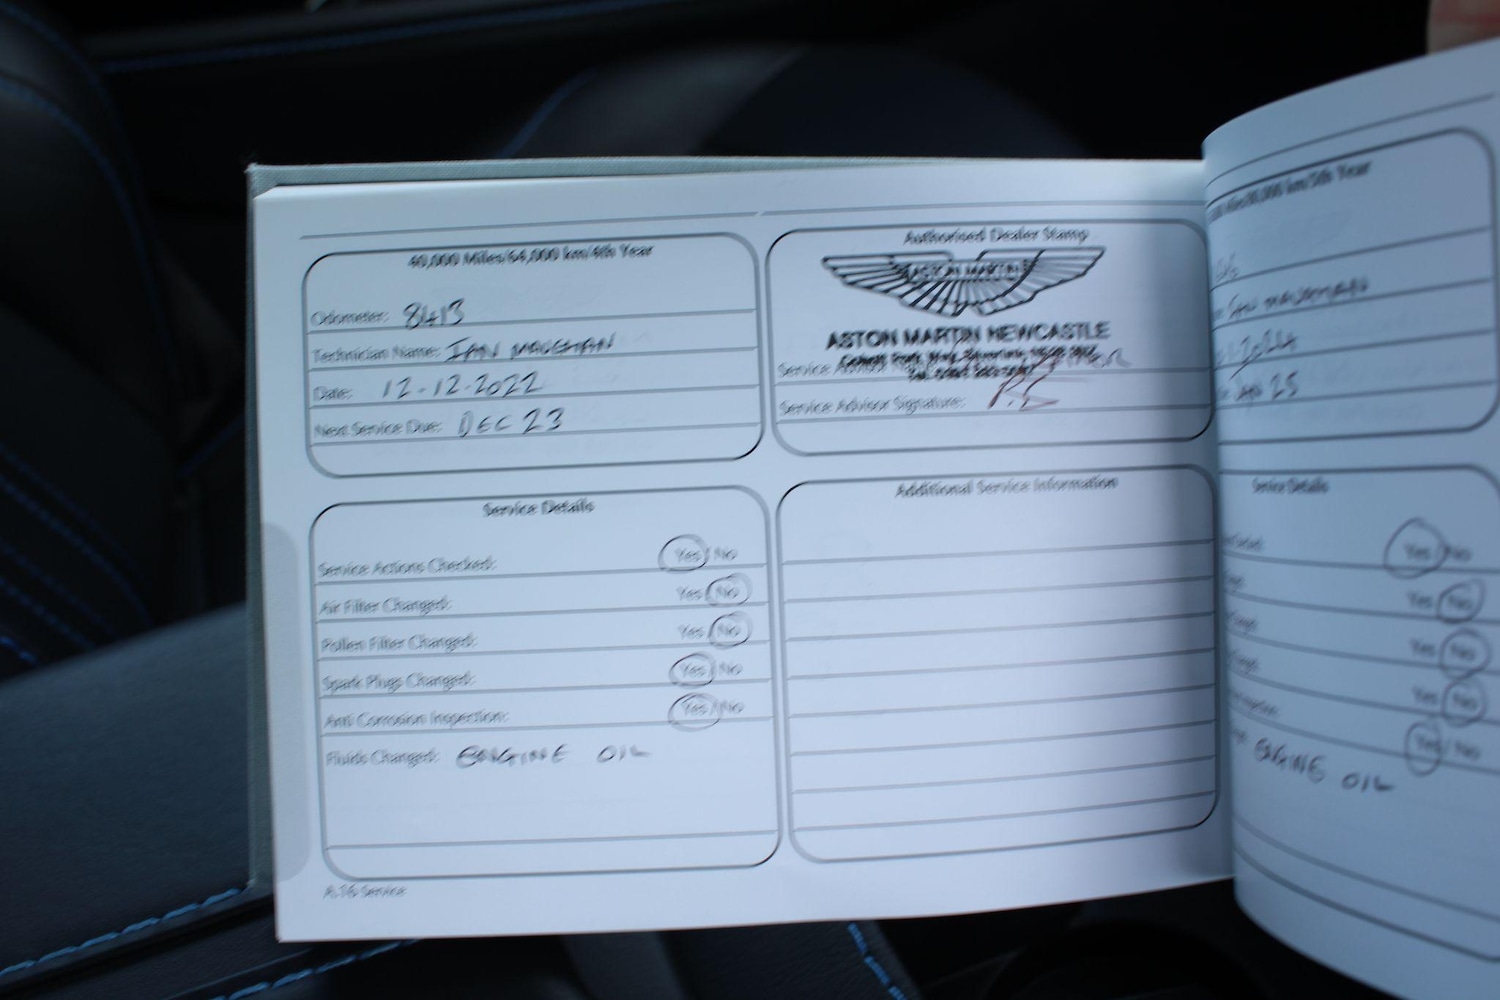 40,000 Miles/64,000 km/4th Year
Odometer: 8413
Technician Name: IAN MAUGHAN
Date: 12-12-2022
Next Service Due: DEC 23
Authorised Dealer Stamp
ASTON MARTIN
ASTON MARTIN NEWCASTLE
Service Advisor
Service Advisor Signature:
Service Details
Service Actions Checked: Yes / No
Air Filter Changed: Yes / No
Pollen Filter Changed: Yes / No
Spark Plugs Changed: Yes / No
Anti Corrosion Inspection: Yes / No
Fluids Changed: ENGINE OIL
A.16 Service
Additional Service Information
km/5th Year
IAN MAUGHAN
2024
25
Service Details
Yes / No
Yes / No
Yes / No
Yes / No
Yes / No
ENGINE OIL